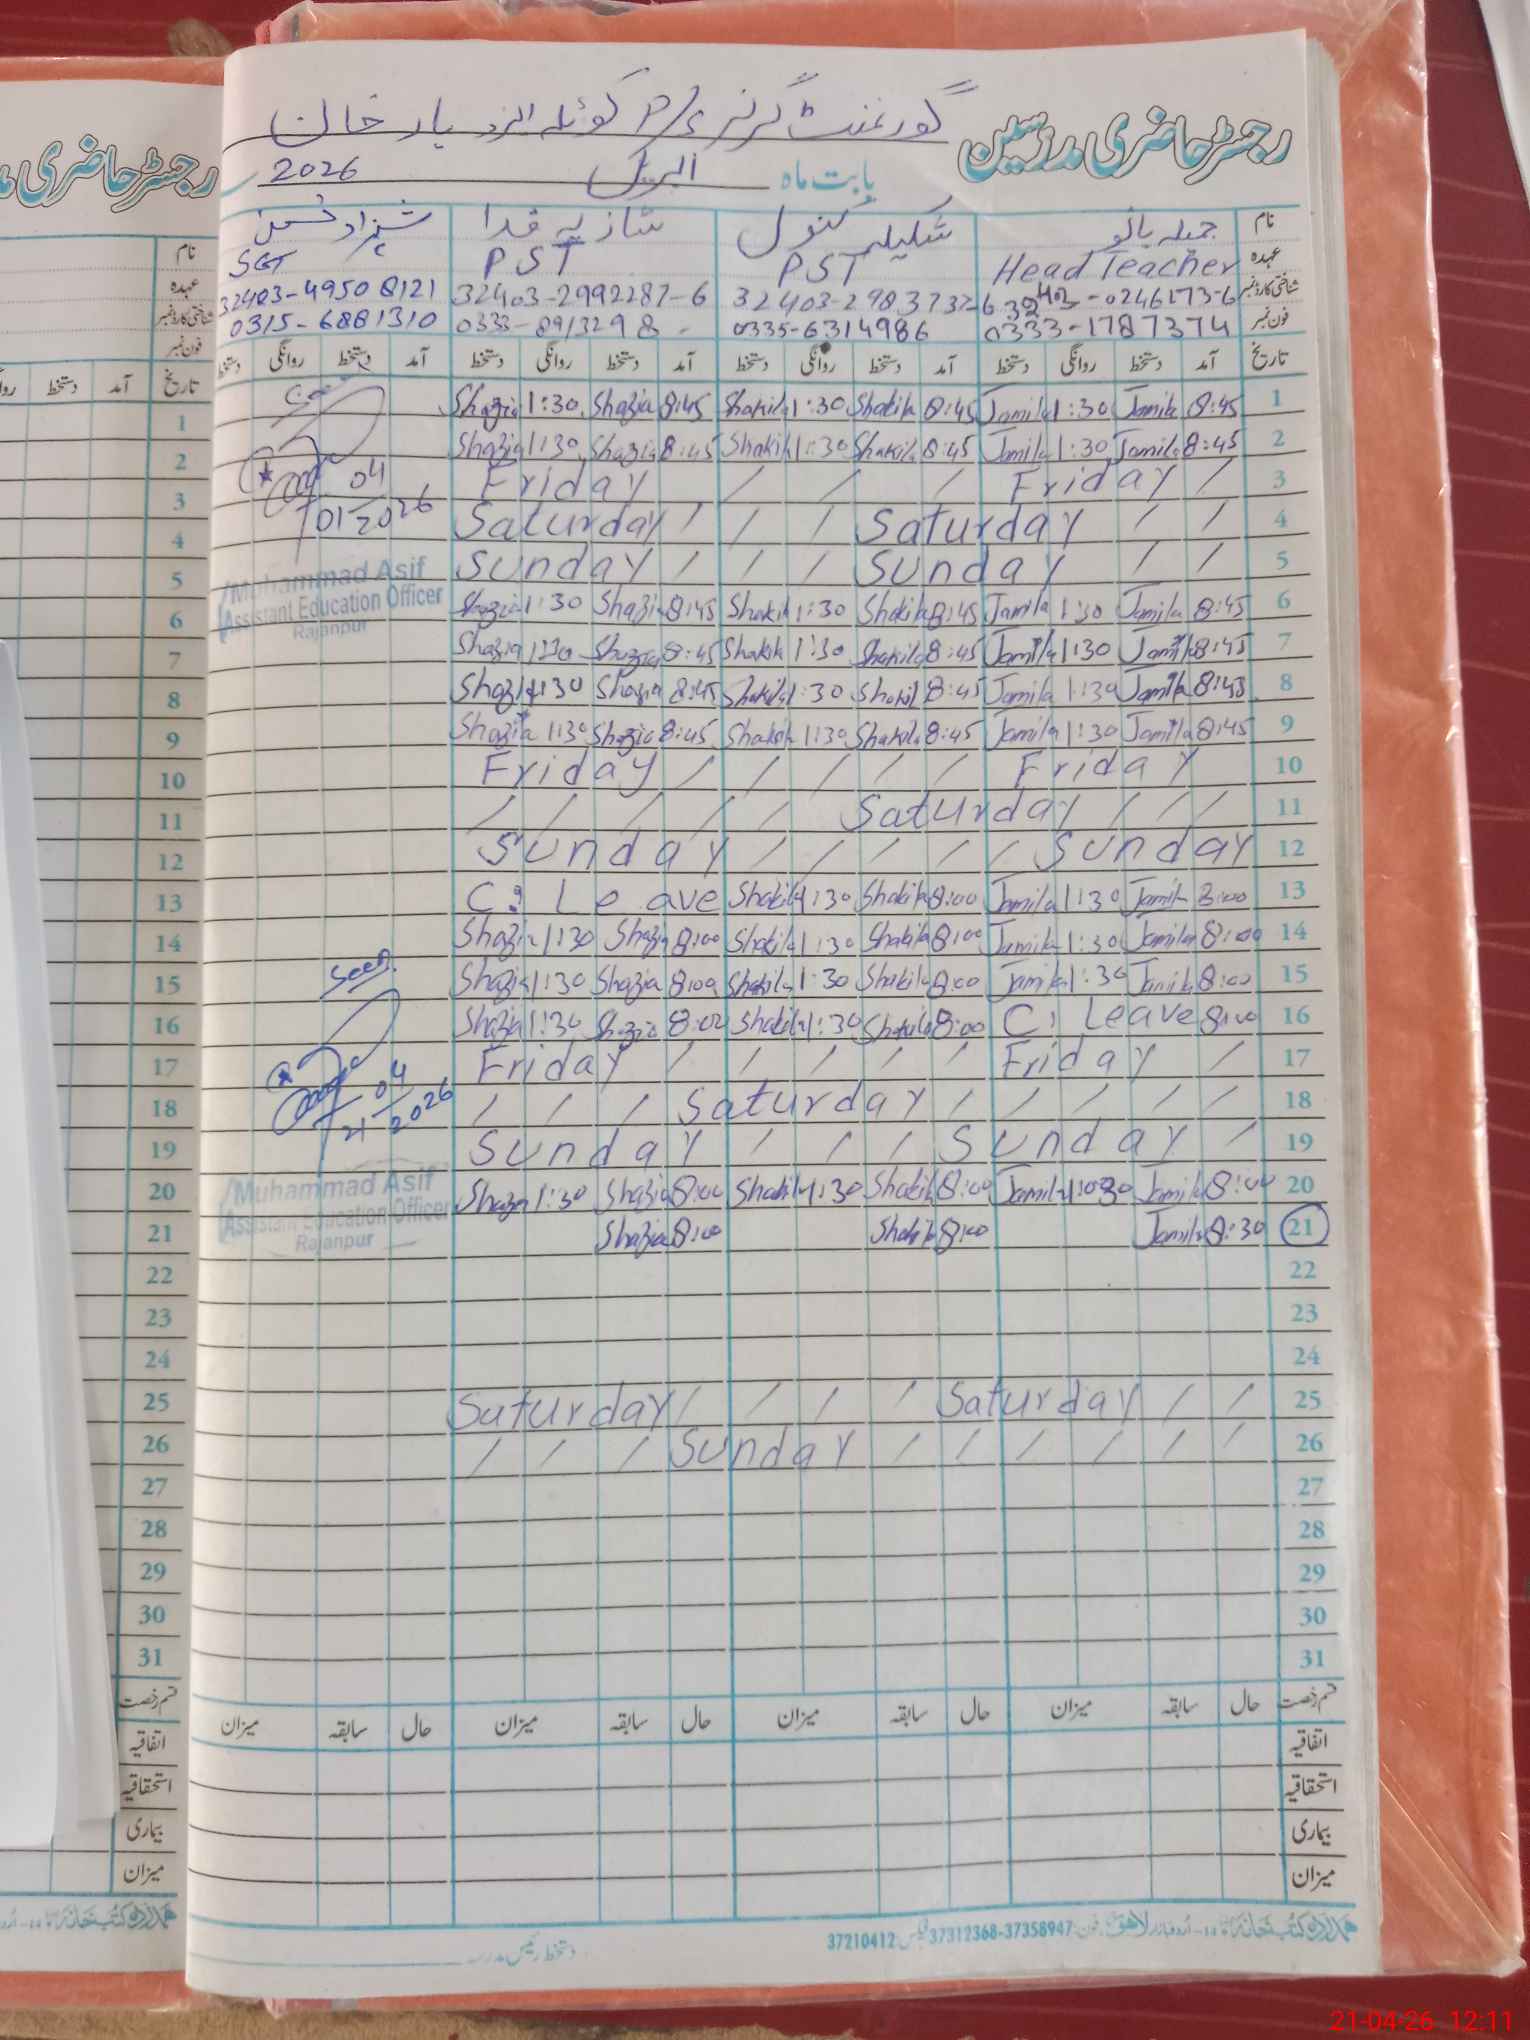 رجسٹر حاضری مدرسین گورنمنٹ گرلز P/S کوٹلہ الہ یار خان
بابت ماہ اپریل 2026
نام جمیلہ بانو شکیلہ کنول شازیہ فدا شہزاد
عہدہ Head Teacher PST PST SGT
شناختی کارڈ نمبر -0246173-6 32403-2983737-6 32403-2992287-6 32403-49508121
فون نمبر 0333-1787374 0335-6314986 0333-8913298 0315-6881310
تاریخ آمد دستخط روانگی دستخط آمد دستخط روانگی دستخط آمد دستخط روانگی دستخط آمد دستخط روانگی دستخط
1 8:45 Jamila 1:30 Jamila 8:45 Shakila 1:30 Shakila 8:45 Shazia 1:30 Shazia
2 8:45 Jamila 1:30 Jamila 8:45 Shakila 1:30 Shakila 8:45 Shazia 1:30 Shazia
3 / Friday / / / Friday 04
4 / / Saturday / / / Saturday 01 2026
5 / / Sunday / / / Sunday Muhammad Asif
6 8:45 Jamila 1:30 Jamila 8:45 Shakila 1:30 Shakil 8:45 Shazia 1:30 Shazia Assistant Education Officer
Rajanpur
7 8:45 Jamila 1:30 Jamila 8:45 Shakila 1:30 Shakila 8:45 Shazia 1:30 Shazia
8 8:45 Jamila 1:30 Jamila 8:45 Shakil 1:30 Shakila 8:45 Shazia 1:30 Shazia
9 8:45 Jamila 1:30 Jamila 8:45 Shakila 1:30 Shakila 8:45 Shazia 1:30 Shazia
10 Friday / / / / / Friday
11 / / / Saturday / / / / /
12 Sunday / / / / / Sunday
13 8:00 Jamila 1:30 Jamila 8:00 Shakila 1:30 Shakila C: Leave
14 8:00 Jamila 1:30 Jamila 8:00 Shakila 1:30 Shakila 8:00 Shazia 1:30 Shazia
15 8:00 Jamila 1:30 Jamila 8:00 Shakila 1:30 Shakila 8:00 Shazia 1:30 Shazia Seen
16 8:00 C: Leave 8:00 Shakila 1:30 Shakila 8:00 Shazia 1:30 Shazia
17 / Friday / / / / / Friday
18 / / / / / Saturday / / / 04
21 2026
19 / Sunday / / / Sunday
20 8:00 Jamila 1:30 Jamila 8:00 Shakila 1:30 Shakila 8:00 Shazia 1:30 Shazia Muhammad Asif
21 8:30 Jamila 8:00 Shakila 8:00 Shazia Assistant Education Officer
Rajanpur
22
23
24
25 / / Saturday / / / / Saturday
26 / / / / / Sunday / / /
27
28
29
30
31
قسم رخصت حال سابقہ میزان حال سابقہ میزان حال سابقہ میزان حال سابقہ میزان
اتفاقیہ
استحقاقیہ
بیماری
میزان
37312368-37358947 37210412
رجسٹر حاضری
نام
عہدہ
شناختی کارڈ نمبر
فون نمبر
تاریخ آمد دستخط
1
2
3
4
5
6
7
8
9
10
11
12
13
14
15
16
17
18
19
20
21
22
23
24
25
26
27
28
29
30
31
قسم رخصت
اتفاقیہ
استحقاقیہ
بیماری
میزان
21-04-26 12:11